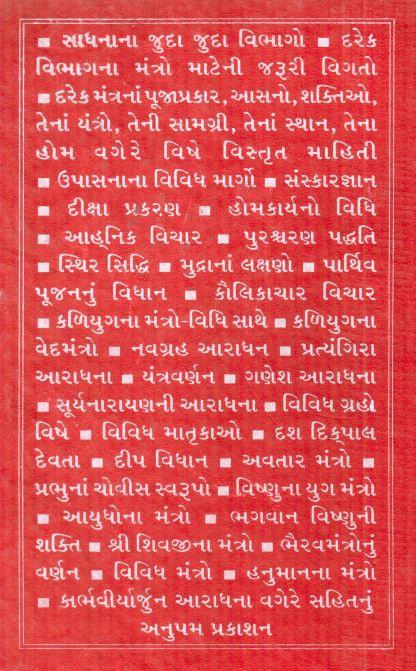 ■ સાધનાના જુદા જુદા વિભાગો ■ દરેક
વિભાગના મંત્રો માટેની જરૂરી વિગતો
■ દરેક મંત્રનાં પૂજાપ્રકાર, આસનો, શક્તિઓ,
તેનાં યંત્રો, તેની સામગ્રી, તેનાં સ્થાન, તેના
હોમ વગેરે વિષે વિસ્તૃત માહિતી
■ ઉપાસનાના વિવિધ માર્ગો ■ સંસ્કારજ્ઞાન
■ દીક્ષા પ્રકરણ ■ હોમકાર્યનો વિધિ
■ આહ્નિક વિચાર ■ પુરશ્ચરણ પદ્ધતિ
■ સ્થિર સિદ્ધિ ■ મુદ્રાનાં લક્ષણો ■ પાર્થિવ
પૂજનનું વિધાન ■ કૌલિકાચાર વિચાર
■ કળિયુગના મંત્રો-વિધિ સાથે ■ કળિયુગના
વેદમંત્રો ■ નવગ્રહ આરાધન ■ પ્રત્યંગિરા
આરાધના ■ યંત્રવર્ણન ■ ગણેશ આરાધના
■ સૂર્યનારાયણની આરાધના ■ વિવિધ ગ્રહો
વિષે ■ વિવિધ માતૃકાઓ ■ દશ દિક્પાલ
દેવતા ■ દીપ વિધાન ■ અવતાર મંત્રો ■
પ્રભુનાં ચોવીસ સ્વરૂપો ■ વિષ્ણુના યુગ મંત્રો
■ આયુધોના મંત્રો ■ ભગવાન વિષ્ણુની
શક્તિ ■ શ્રી શિવજીના મંત્રો ■ ભૈરવમંત્રોનું
વર્ણન ■ વિવિધ મંત્રો ■ હનુમાનના મંત્રો
■ કાર્ભવીર્યાર્જુન આરાધના વગેરે સહિતનું
અનુપમ પ્રકાશન